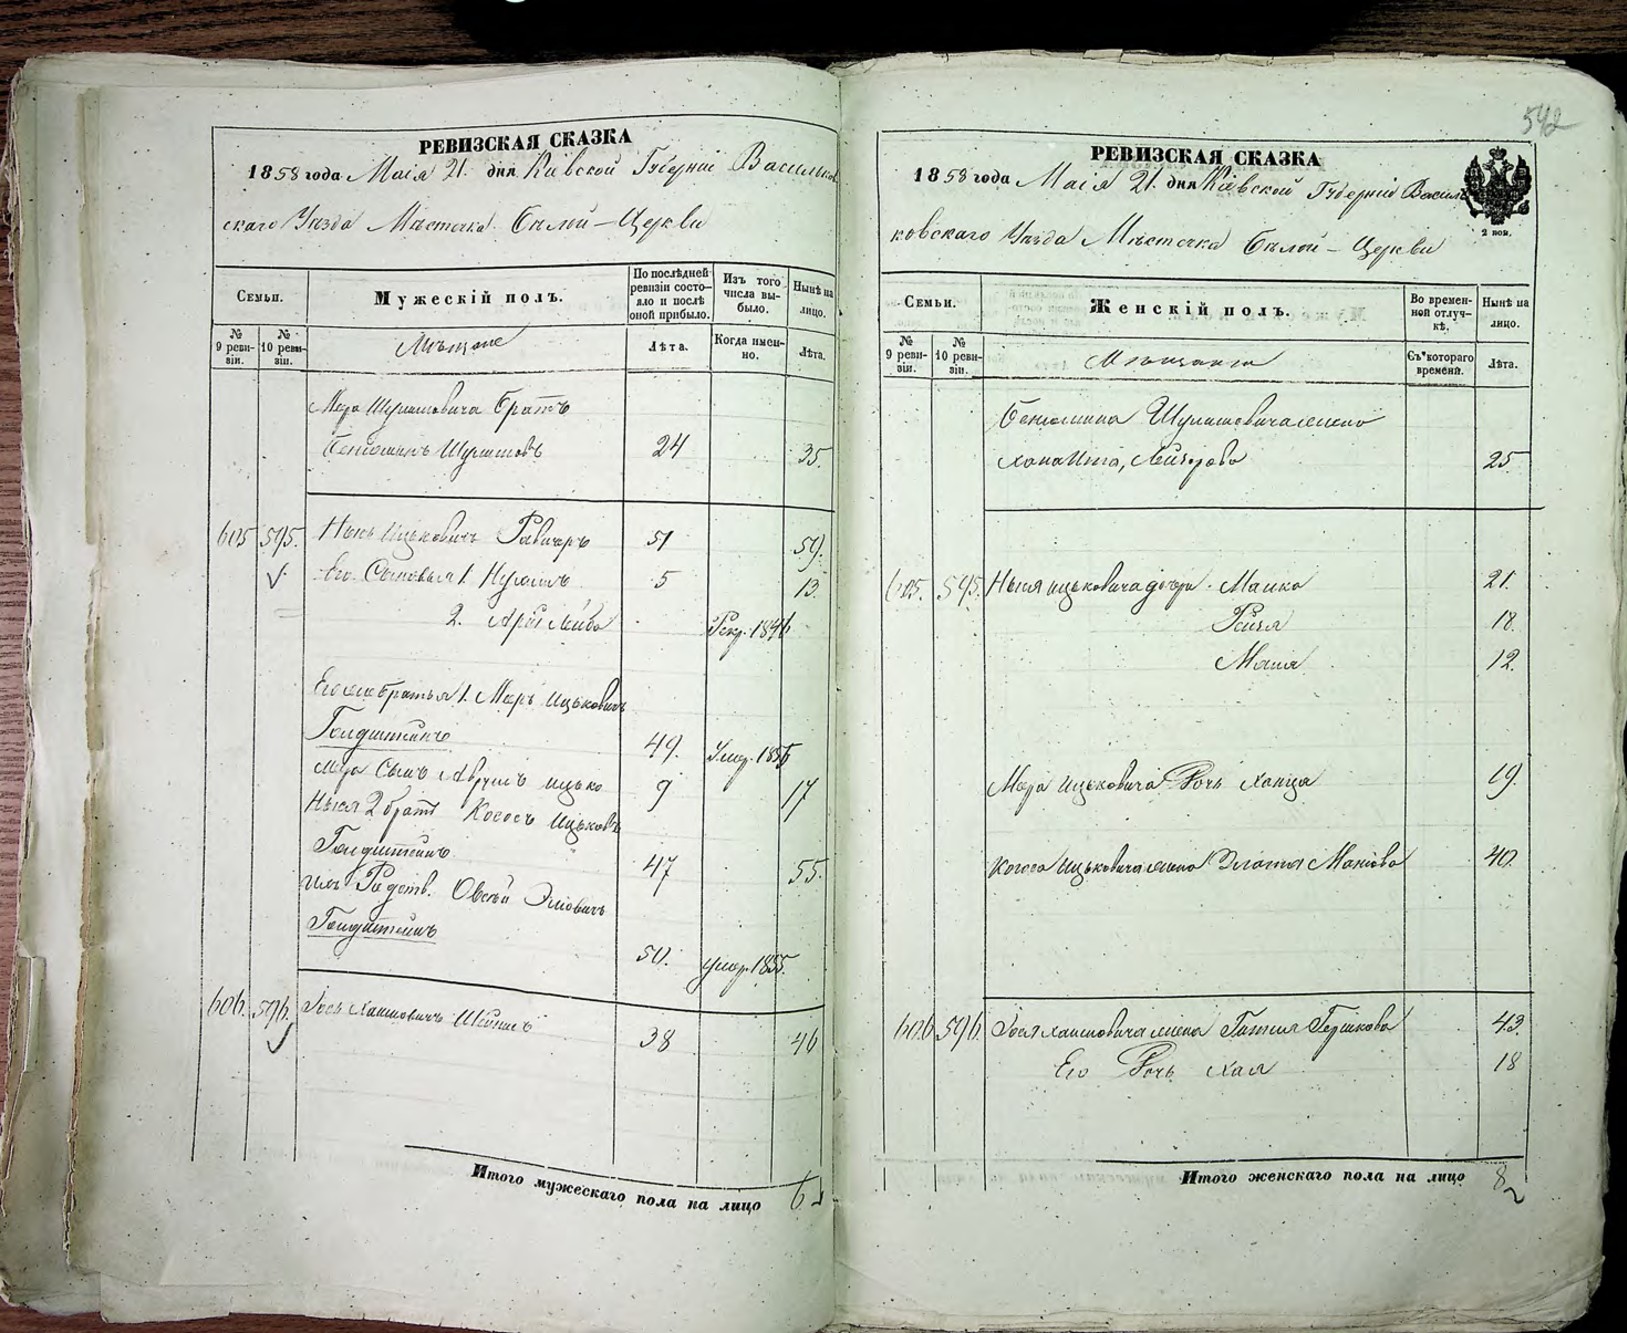 542
РЕВИЗСКАЯ СКАЗКА
1858 года Маія 21. дня Кіевской Губерніи Васильков
скаго Уѣзда Мѣстечка Бѣлой-Церкви
Семьи.
Мужескій полъ.
По послѣдней ревизіи состо-
яло и послѣ
оной прибыло.
Изъ того
числа вы-
было.
Нынѣ на
лицо.
№
9 реви-
зіи.
№
10 реви-
зіи.
Мѣщане
Лѣта.
Когда имен-
но.
Лѣта.
Мера Шулимовича братъ
Беніоминъ Шулимовъ 24 35.
605 595. Ицьковичъ 51 59.
Его Сыновья 1. 5 13.
2. Арій Лейба Рекр. 1846
Его же братья 1. Меръ Ицьковичъ
Голдштейнъ 49. Умер. 1856
Мера Сынъ Аврумъ Ицько 9 17
2 братъ Ицьковъ
Голдштейнъ 47 55.
Ихъ Родств. Овсѣй
Голдштейнъ 50. умер. 1855.
606. 596. Хаимовичъ 38 46
Итого мужескаго пола на лицо 6
РЕВИЗСКАЯ СКАЗКА
1858 года Маія 21. дня Кіевской Губерніи Василь
ковскаго Уѣзда Мѣстечка Бѣлой-Церкви
2 коп.
Семьи.
Женскій полъ.
Во времен-
ной отлуч-
кѣ.
Нынѣ на
лицо.
№
9 реви-
зіи.
№
10 реви-
зіи.
Мѣщанки
Съ котораго
времени.
Лѣта.
Беніомина Шулимовича жена
Хана Ита, 25
605. 595. Ицьковича дочери Малка 21.
Рейзя 18.
Маля 12.
Мера Ицьковича Дочь Ханца 19.
Ицьковича жена Злотя 40.
606 596. Хаимовича жена Гершкова 43.
Его Дочь Хая 18
Итого женскаго пола на лицо 8